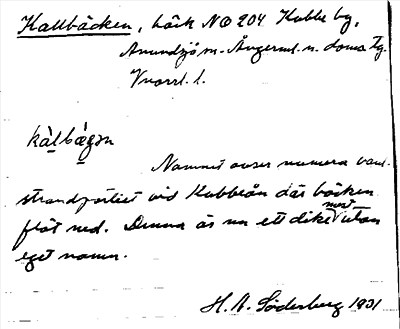 Kallbäcken, bäck NO 204 Kubbe by,
Anundsjö sn. Ångerml. n. doms tg.
Vnorrl. l.
kàlbä̀gən
Namnet avser numera bara
strandpartiet vid Kubbeån där bäcken
flöt ned. Denna är nu ett dike mest utan
eget namn.
H. A. Söderberg 1931